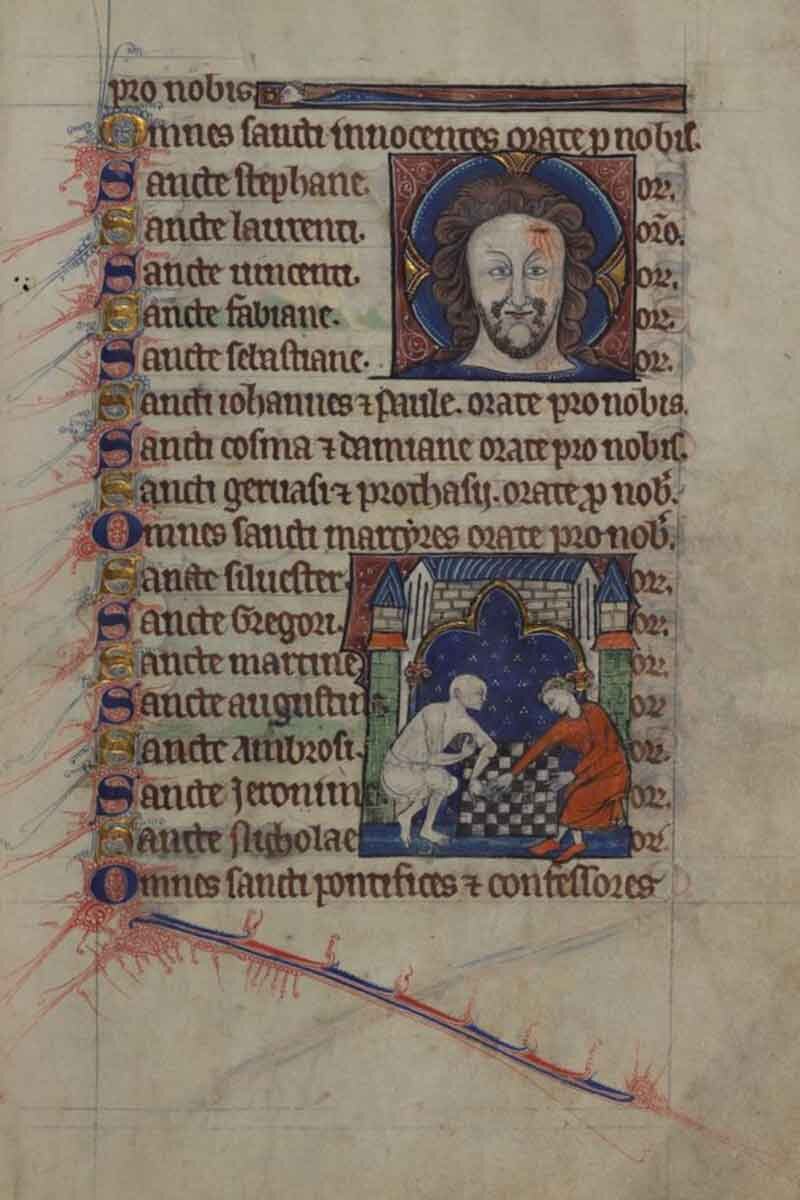 pro nobis
Omnes sancti innocentes orate p nobis.
Sancte stephane. or.
Sancte laurenti. orō.
Sancte vincenti. or.
Sancte fabiane. or.
Sancte sebastiane. or.
Sancti iohannes ⁊ paule. orate pro nobis.
Sancti cosma ⁊ damiane orate pro nobis.
Sancti geruasi ⁊ prothasij. orate ꝓ nob̄.
Omnes sancti martyres orate pro nob̄.
Sancte siluester or.
Sancte Gregori. or.
Sancte martine or.
Sancte augustine or
Sancte Ambrosi. or.
Sancte Jeronime or.
Sancte Nicholae or
Omnes sancti pontifices ⁊ confessores